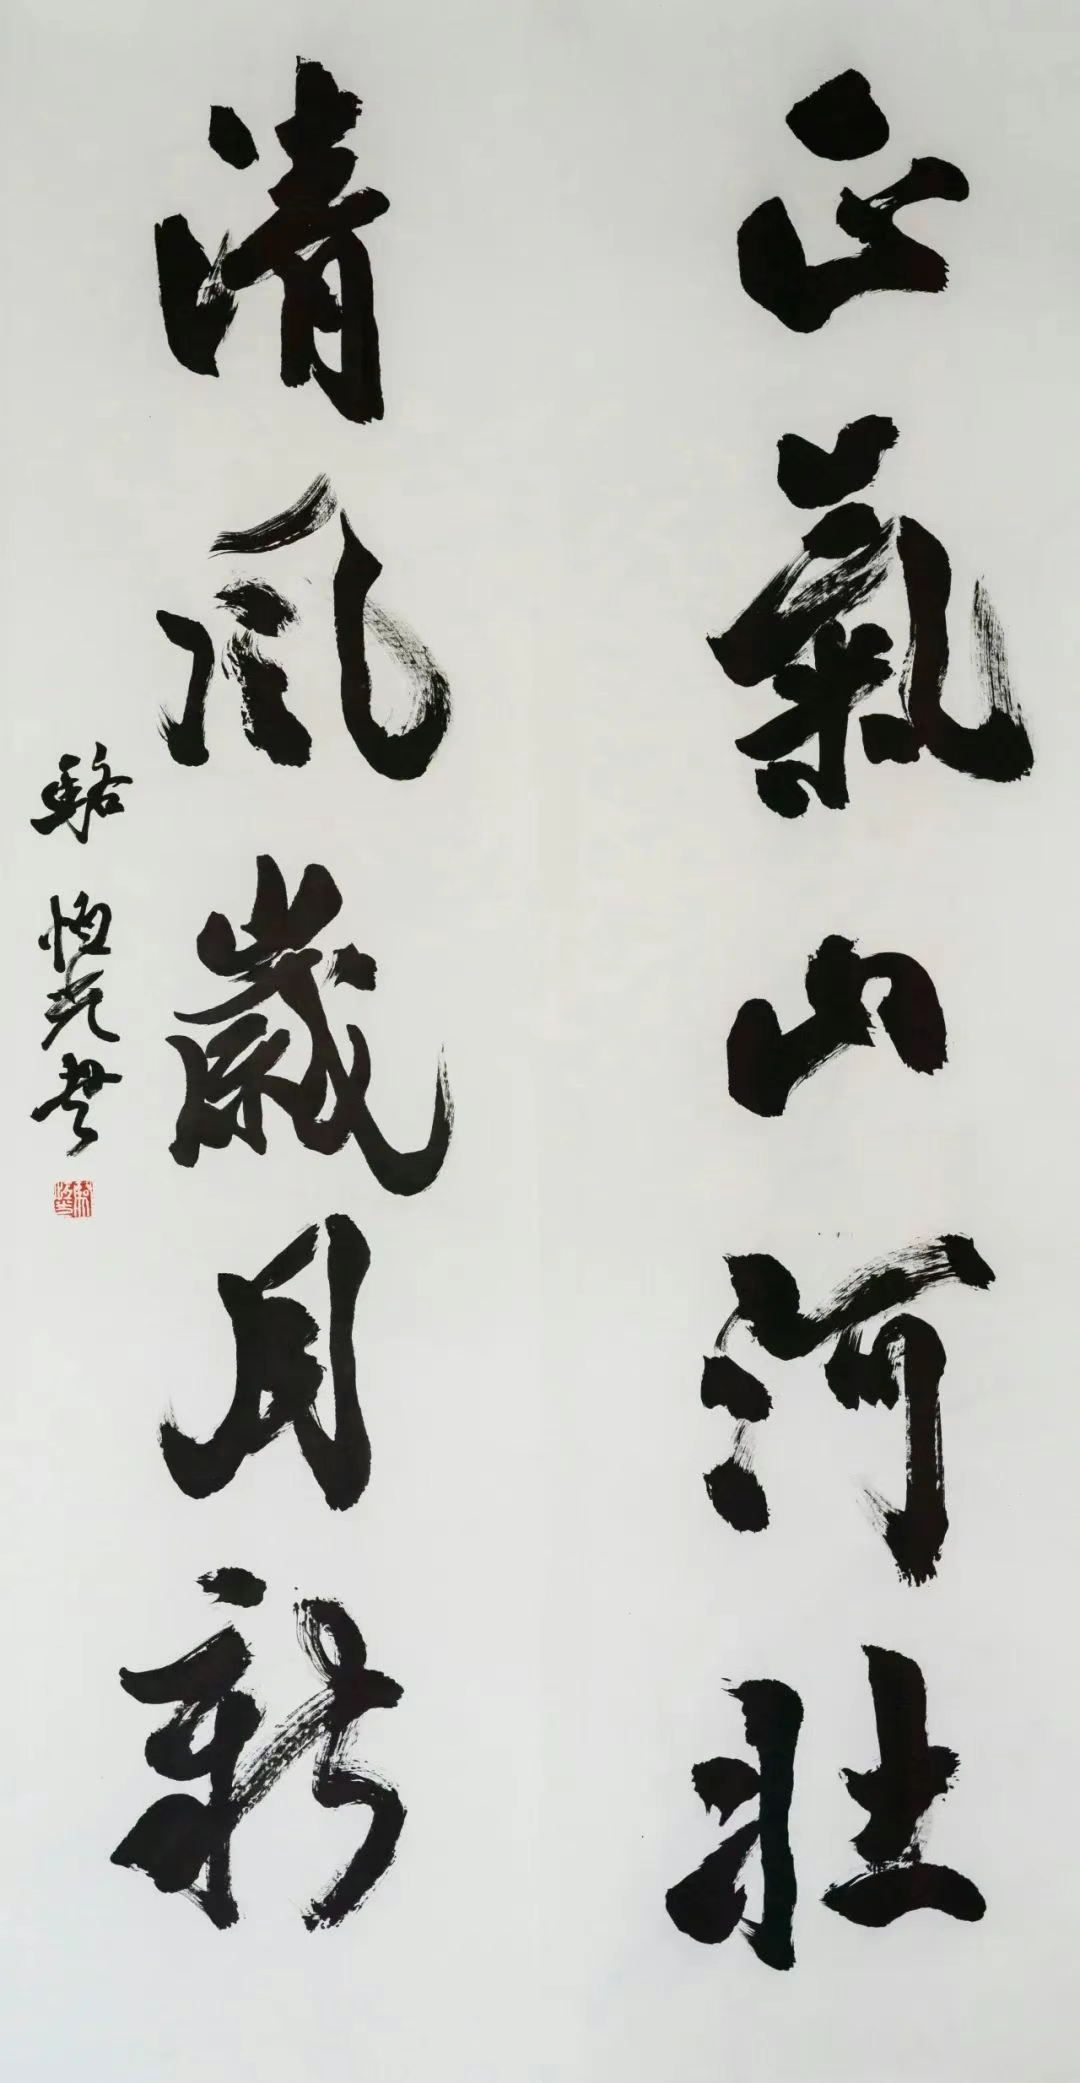 正氣山河壯
清風歲月新
駱恒光書